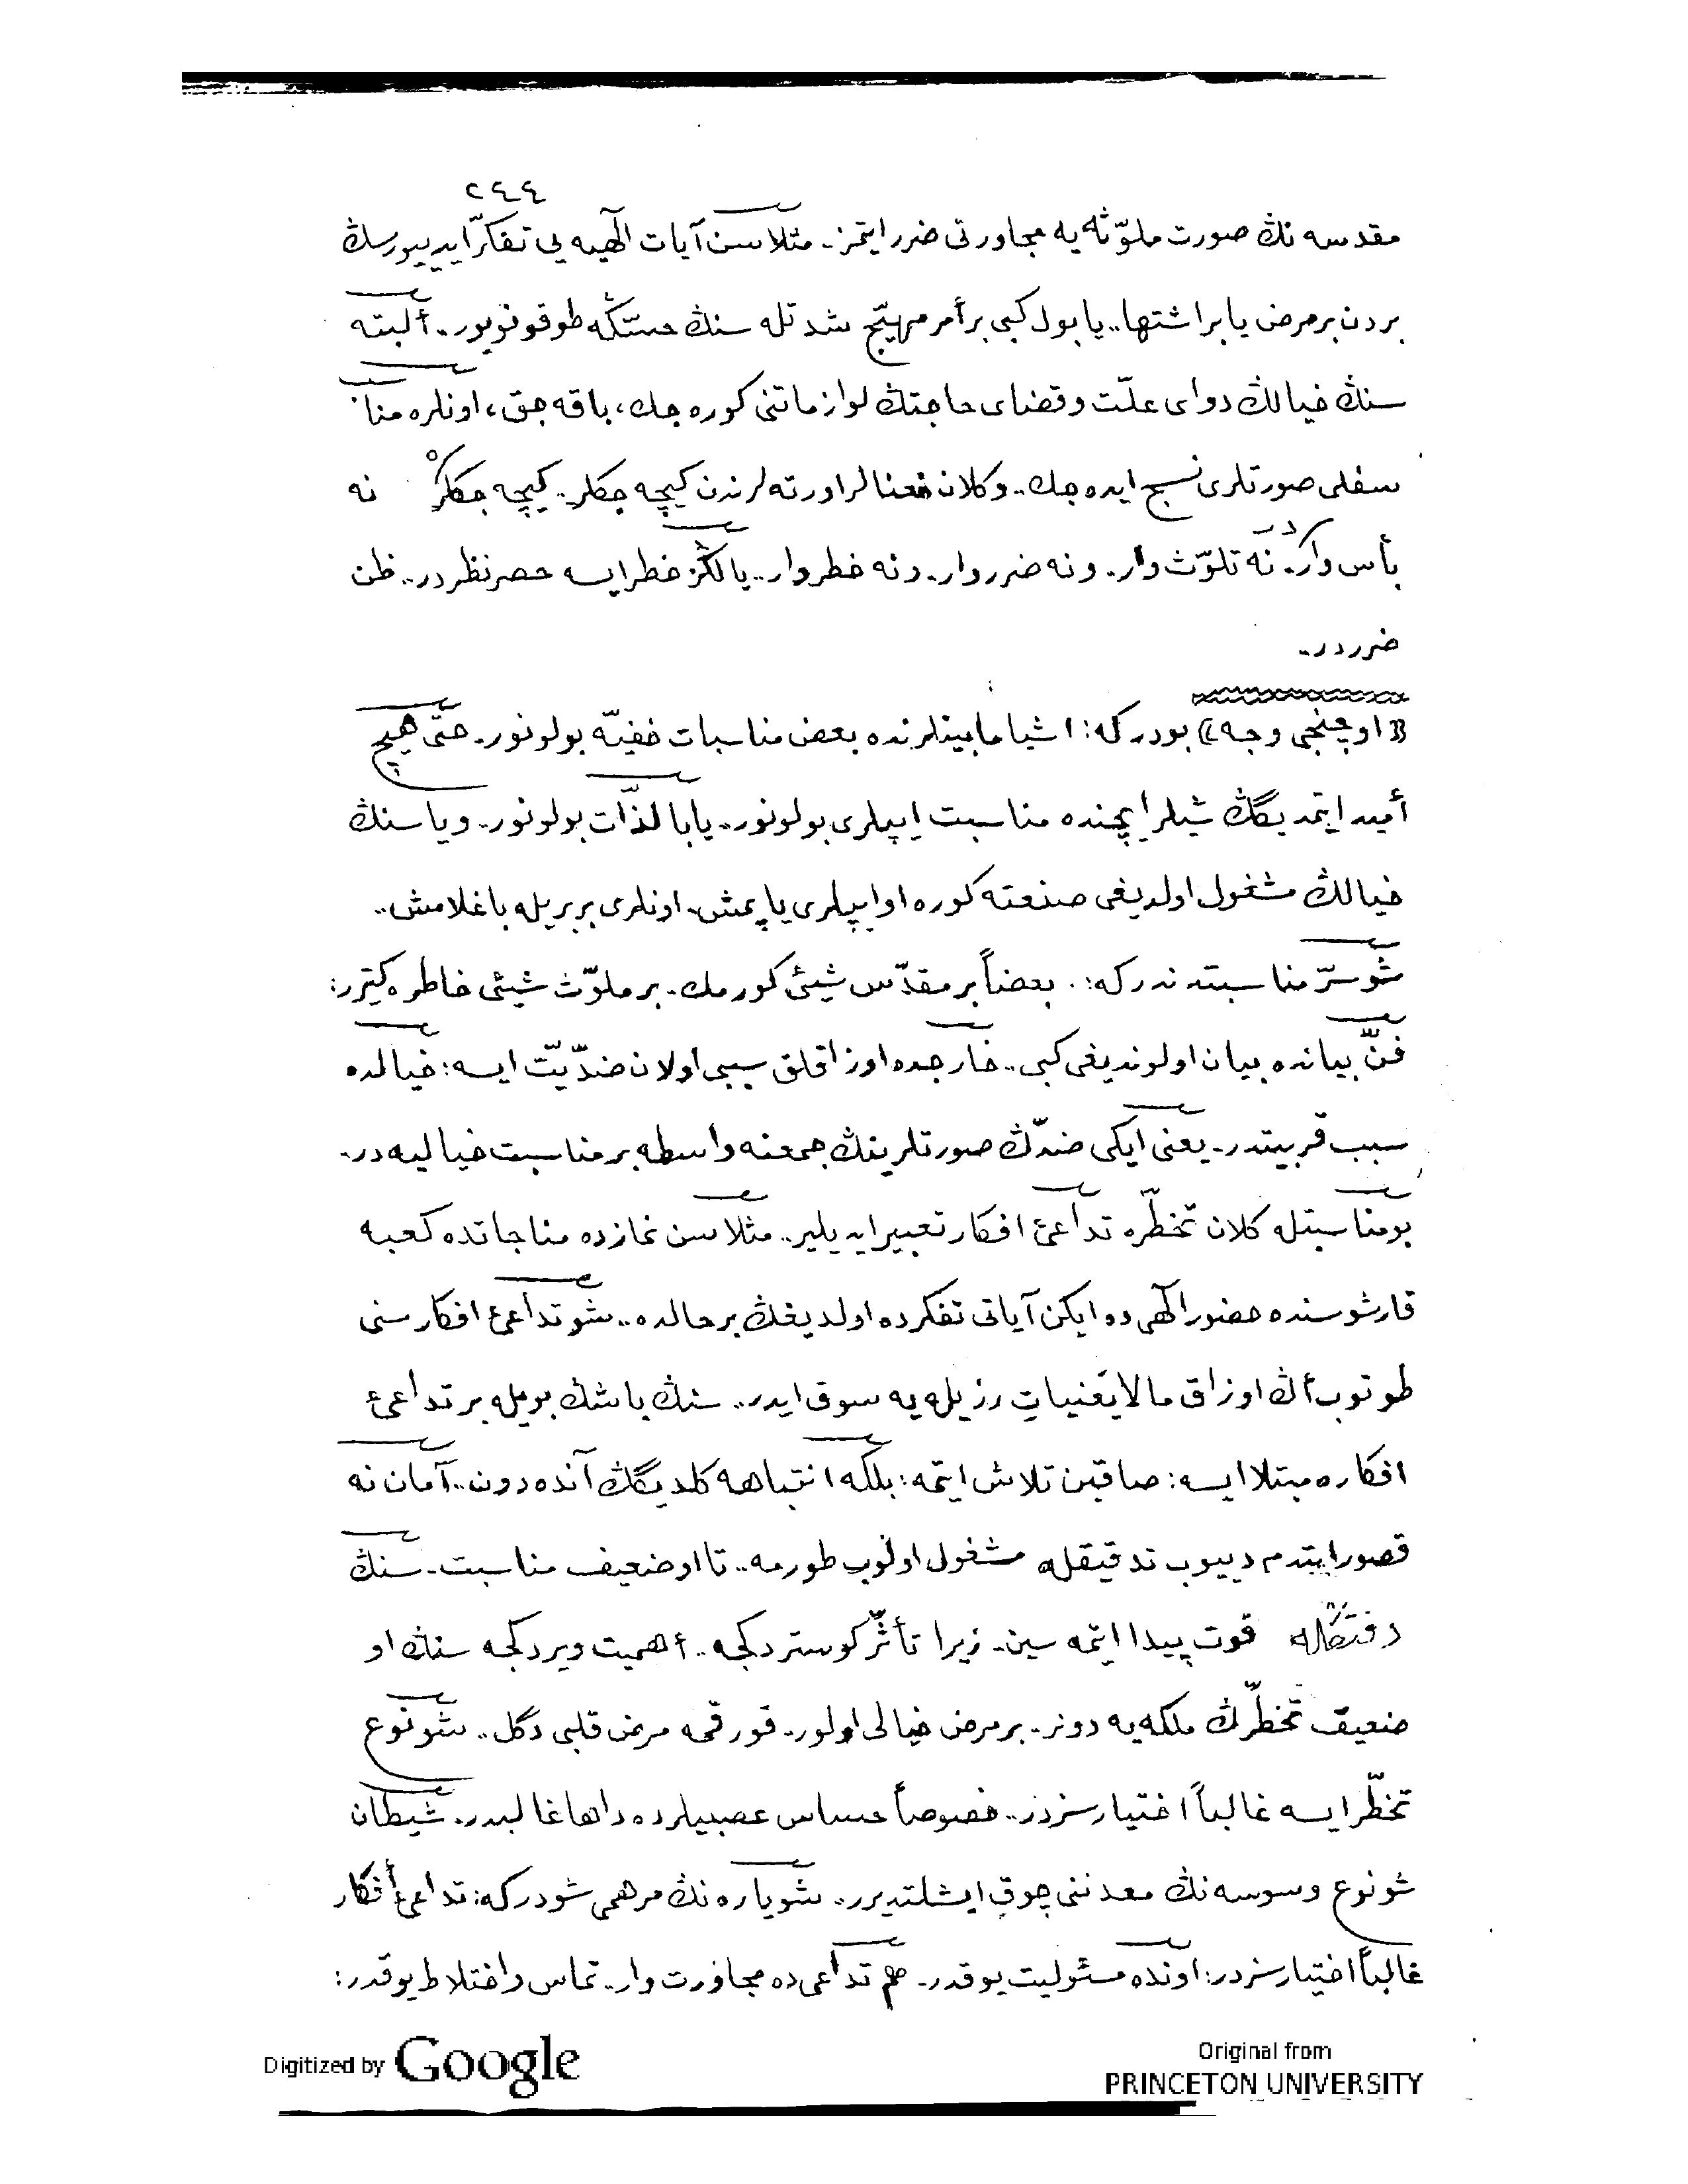 ٢٤٤
مقدسه نڭ صورت ملوّثه يه مجاورتى ضرر ايتمز.. مثلا سن آيات الٓهيه يى تفكّر ايدييورسڭ
بردن بر مرض يا بر اشتها.. يا بول كبى بر أمر مهيّج شدتله سنڭ حسّڭه طوقونويور.. ألبته
سنڭ خيالڭ دواى علّت و قضاى حاجتڭ لوازماتنى كوره جك، باقه جق، اونلره مناسب
سفلى صورتلرى نسج ايده جك.. و كلان معنالر اورته لرندن كيچه جكلر.. كيچه جكلرْ نه
بأس واردر. نه تلوّث وار. و نه ضرر وار. و نه خطر وار.. يالڭز خطر ايسه حصر نظردر.. ظن
ضرردر..
«اوچنجى وجه» بودر كه: اشيا مابينلرنده بعض مناسبات خفيّه بولونور. حتّى هيچ
أميد ايتمديگڭ شيلر ايچنده مناسبت ايپلرى بولونور.. يا بالذّات بولونور.. ويا سنڭ
خيالڭ مشغول اولديغى صنعته كوره او ايپلرى ياپمش. اونلرى بربريله باغلامش..
شو سرّ مناسبتدندر كه: بعضاً بر مقدّس شيئى كورمك. بر ملوّث شيئى خاطره كتيرر:
فنّ بيانده بيان اولونديغى كبى.. خارجده اوزاقلق سببى اولان ضدّيّت ايسه: خيالده
سبب قربيتدر. يعنى ايكى ضدّڭ صورتلرينڭ جمعنه واسطه بر مناسبت خياليه در.
بو مناسبتله كلان تخطّره تداعئ افكار تعبير ايديلير.. مثلا سن نمازده مناجاتده كعبه
قارشوسنده حضور الٓهى ده ايكن آياتى تفكرده اولديغڭ بر حالده.. شو تداعئ افكار سنى
طوتوب أڭ اوزاق مالايَعْنياتِ رزيله يه سوق ايدر.. سنڭ باشڭ بويله بر تداعئ
افكاره مبتلا ايسه: صاقين تلاش ايتمه: بلكه انتباهه كلديگڭ آنده دون.. آمان نه
قصور ايتدم دييوب تدقيقله مشغول اولوب طورمه.. تا او ضعيف مناسبت. سنڭ
دقتڭله قوت پيدا ايتمه سين. زيرا تأثّر كوستردكجه.. أهميت ويردكجه سنڭ او
ضعيف تخطّرڭ ملكه يه دونر. بر مرض خيالى اولور. قورقمه مرض قلبى دگل.. شو نوع
تخطّر ايسه غالباً اختيارسزدر.. خصوصاً حساس عصبيلرده داها غالبدر. شيطان
شو نوع وسوسه نڭ معدننى چوق ايشلتديرر.. شو ياره نڭ مرهمى شودر كه: تداعئ أفكار
غالباً اختيارسزدر: اونده مسئوليت يوقدر. هم تداعى ده مجاورت وار. تماس و اختلاط يوقدر:
Digitized by Google
Original from
PRINCETON UNIVERSITY